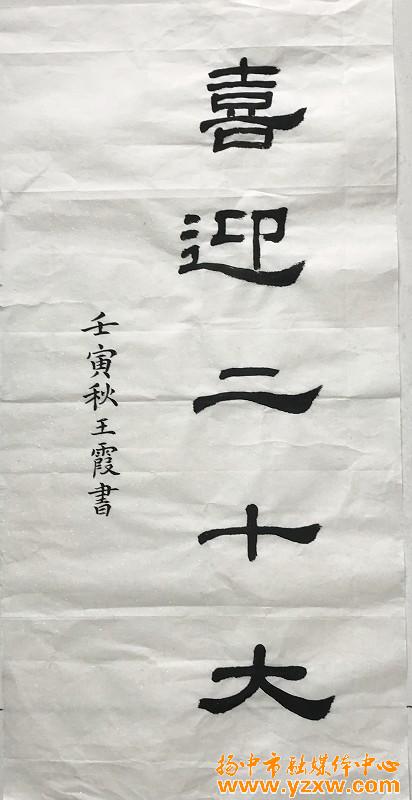 喜迎二十大
壬寅秋王霞書
扬中市融媒体中心
www.yzxw.com